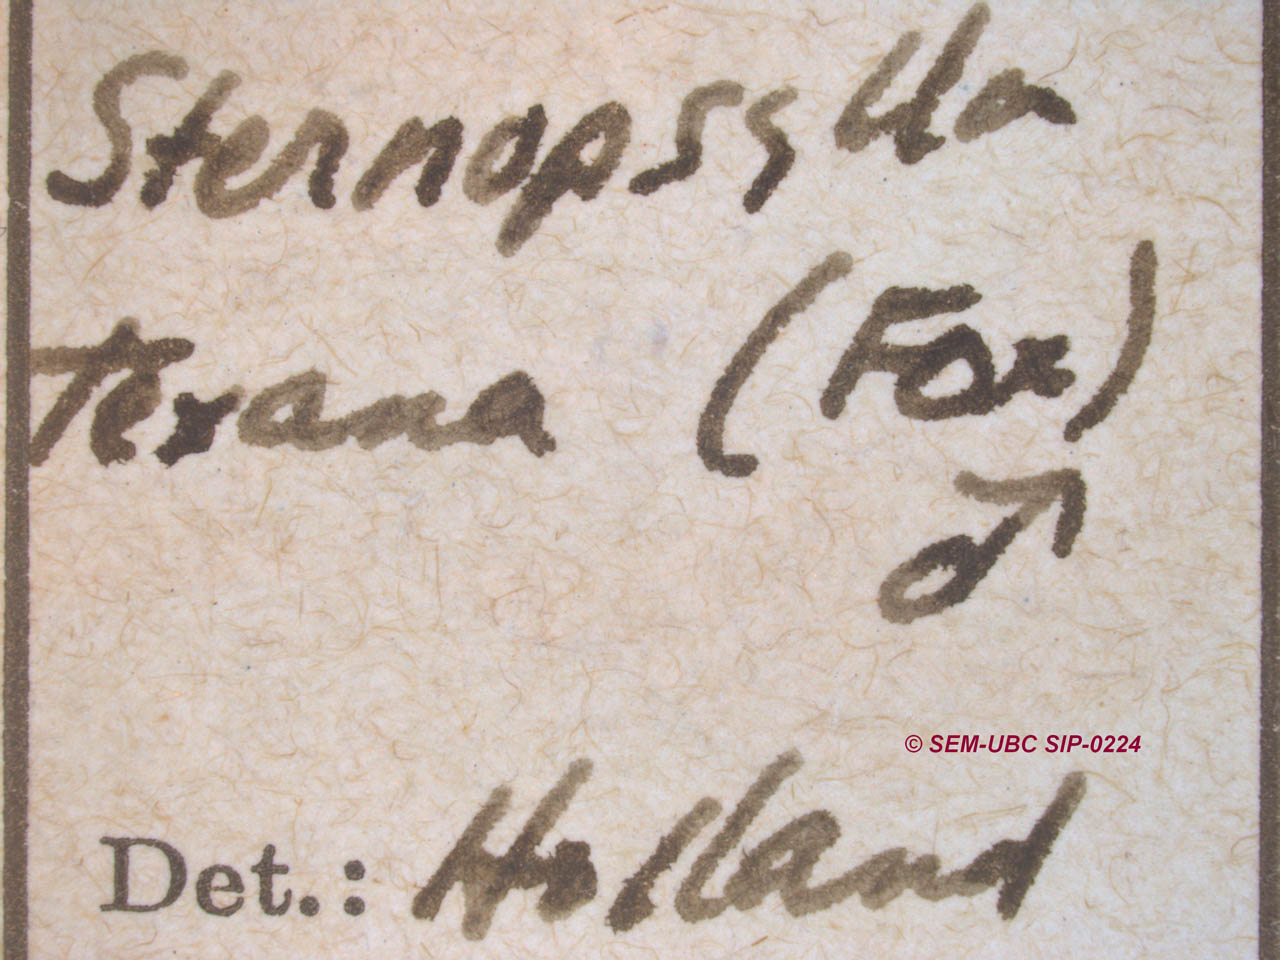 Sternopsylla
texana (Fox)
♂
© SEM-UBC SIP-0224
Det.: Holland